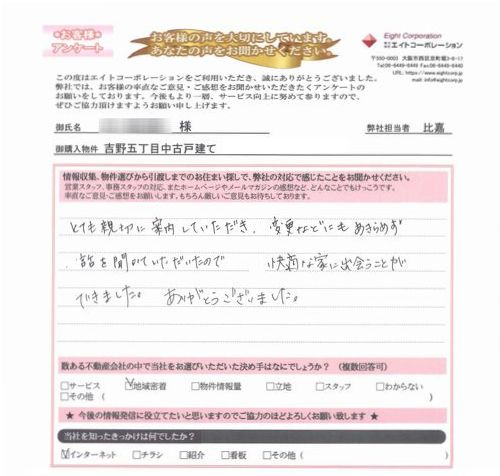 お客様
アンケート
お客様の声を大切にしています
あなたの声をお聞かせください。
Eight Corporation
株式会社エイトコーポレーション
〒550-0003 大阪市西区京町堀3-8-17
Tel:06-6449-6449 Fax:06-6449-6440
URL: https://www.eightcorp.jp
E-mail: info@eightcorp.jp
この度はエイトコーポレーションをご利用いただき、誠にありがとうございました。
弊社では、お客様の率直なご意見・ご感想をお聞かせいただきたくアンケートの
お願いをしております。今後もより一層、サービス向上に努めて参りますので、
ぜひご協力頂けますようお願い申し上げます。
御氏名 様 弊社担当者 比嘉
御購入物件 吉野五丁目中古戸建て
情報収集、物件選びから引渡までのお住まい探しで、弊社の対応で感じたことをお聞かせください。
営業スタッフ、事務スタッフの対応、またホームページやメールマガジンの感想など、どんなことでもけっこうです。
率直なご意見・ご感想をお願いします。もちろん厳しいご意見もお待ちしております。
とても親切に案内していただき、変更などにもあきらめず
話を聞いていただいたので 快適な家に出会うことが
できました。 ありがとうございました。
数ある不動産会社の中で当社をお選びいただいた決め手はなにでしょうか? (複数回答可)
□サービス ☑地域密着 □物件情報量 □立地 □スタッフ □わからない
□その他 (
★ 今後の情報発信に役立てたいと思いますのでご協力のほどよろしくお願い致します ★
当社を知ったきっかけは何でしたか?
☑インターネット □チラシ □紹介 □看板 □その他 (